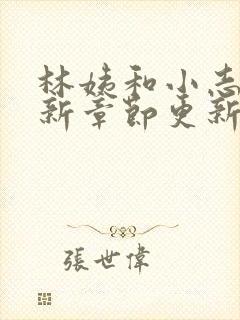 林姨和小志
新章節更新
張世偉